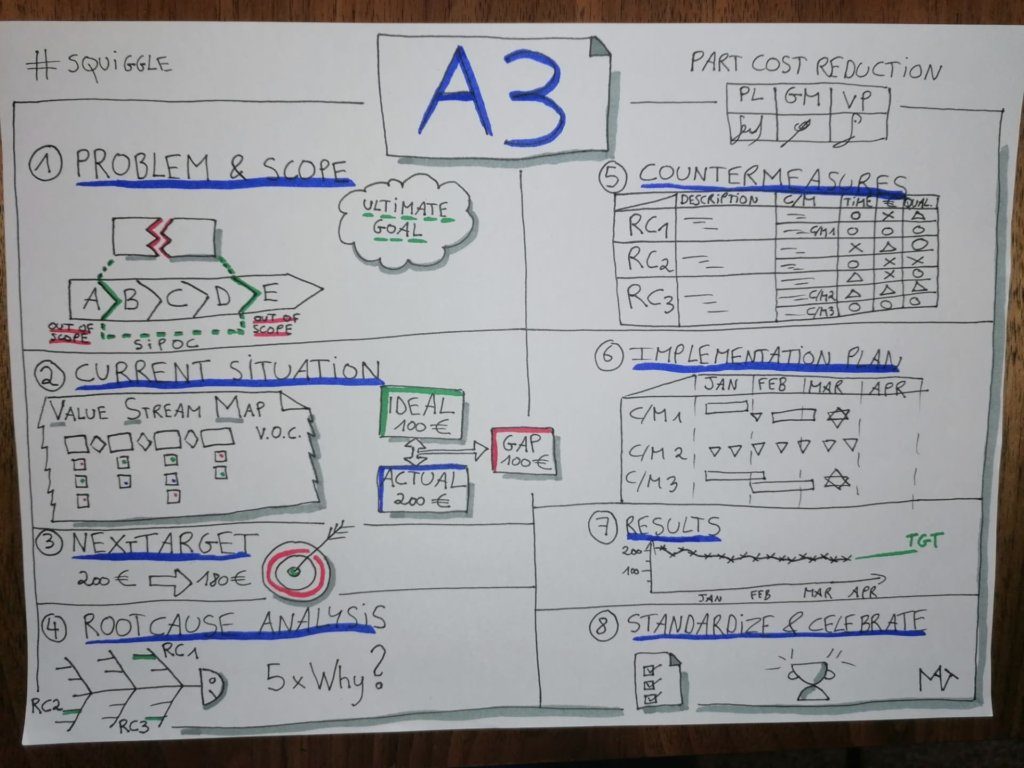 # SQUIGGLE
A3
PART COST REDUCTION
PL GM VP
1 PROBLEM & SCOPE
ULTIMATE
GOAL
A B C D E
OUT OF
SCOPE
SIPOC
OUT OF
SCOPE
2 CURRENT SITUATION
VALUE STREAM MAP
V.O.C.
IDEAL
100 €
GAP
100 €
ACTUAL
200 €
3 NEXT TARGET
200 € 180 €
4 ROOT CAUSE ANALYSIS
RC1
RC2
RC3
5 x Why?
5 COUNTERMEASURES
DESCRIPTION C/M TIME € QUAL.
RC1
C/M1
RC2
RC3
C/M2
C/M3
6 IMPLEMENTATION PLAN
JAN FEB MAR APR
C/M 1
C/M 2
C/M 3
7 RESULTS
200
100
TGT
JAN FEB MAR APR
8 STANDARDIZE & CELEBRATE